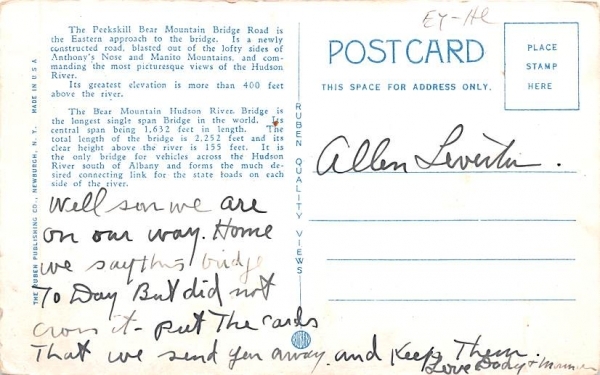 The Peekskill Bear Mountain Bridge Road is
the Eastern approach to the bridge. Is a newly
constructed road, blasted out of the lofty sides of
Anthony's Nose and Manito Mountains, and com-
manding the most picturesque views of the Hudson
River.
Its greatest elevation is more than 400 feet
above the river.
The Bear Mountain Hudson River Bridge is
the longest single span Bridge in the world. Its
central span being 1,632 feet in length. The
total length of the bridge is 2,252 feet and its
clear height above the river is 155 feet. It
is the only bridge for vehicles across the Hudson
River south of Albany and forms the much de-
sired connecting link for the state roads on each
side of the river.
Well son we are
on our way. Home
we say this bridge
To Day But did not
cross it - put The cards
That we send you away and Keep Them.
Love Dady +
THE RUBEN PUBLISHING CO., NEWBURGH, N. Y. MADE IN U S A
RUBEN QUALITY VIEWS
EY-Hl
POST CARD
THIS SPACE FOR ADDRESS ONLY.
PLACE
STAMP
HERE
Allen